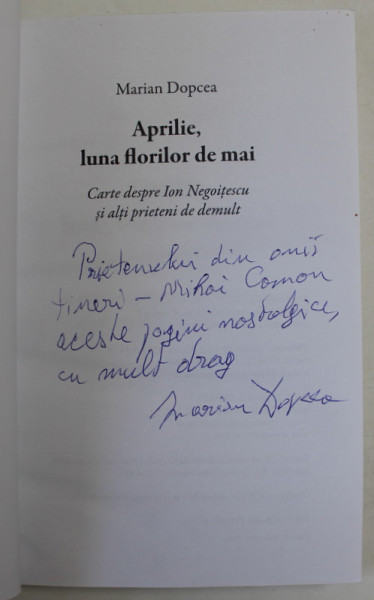 Marian Dopcea
Aprilie,
luna florilor de mai
Carte despre Ion Negoițescu
și alți prieteni de demult
Prietenului din anii
tineri – Mihai Coman
aceste pagini nostalgice,
cu mult drag
Marian Dopcea